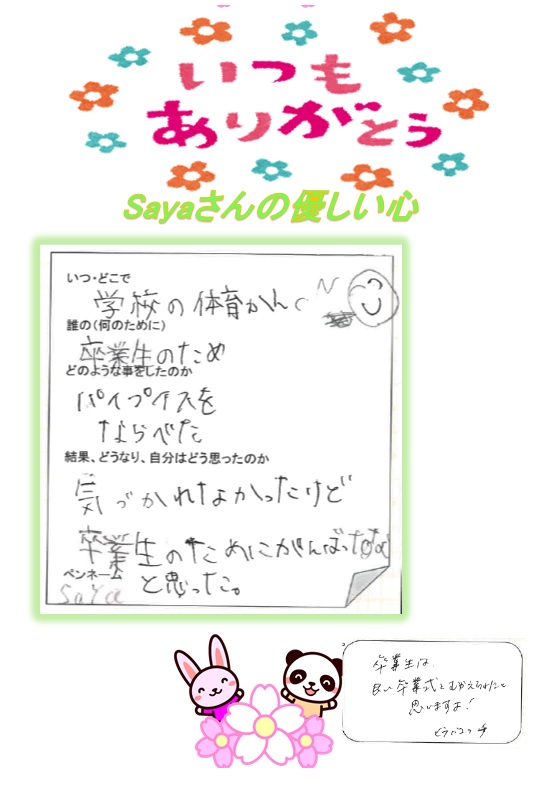 いつも
ありがとう
Sayaさんの優しい心
いつ・どこで
学校の体育かん
誰の(何のために)
卒業生のため
どのような事をしたのか
パイプイスを
ならべた
結果、どうなり、自分はどう思ったのか
気づかれなかったけど
卒業生のためにがんばったな
と思った。
ペンネーム
saya
卒業生は、
良い卒業式をむかえられたと
思いますよ!